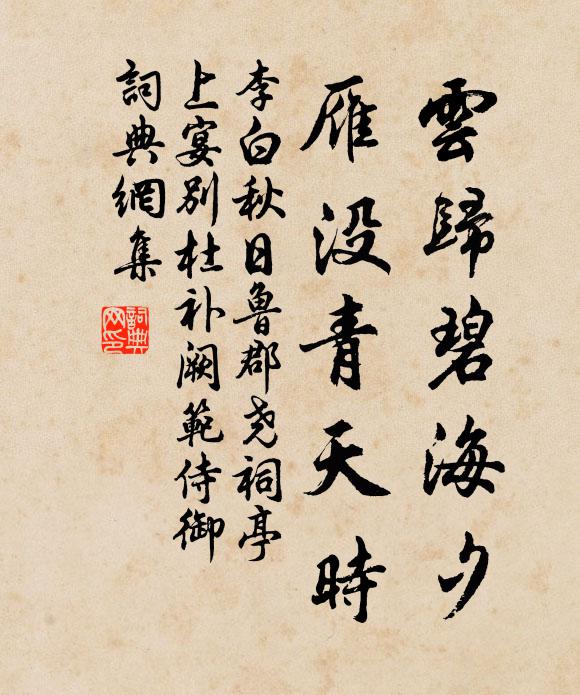 雲歸碧海夕
雁没青天時
李白秋日魯郡尧祠亭
上宴别杜补阙範侍御
詞典網集
詞典
网印